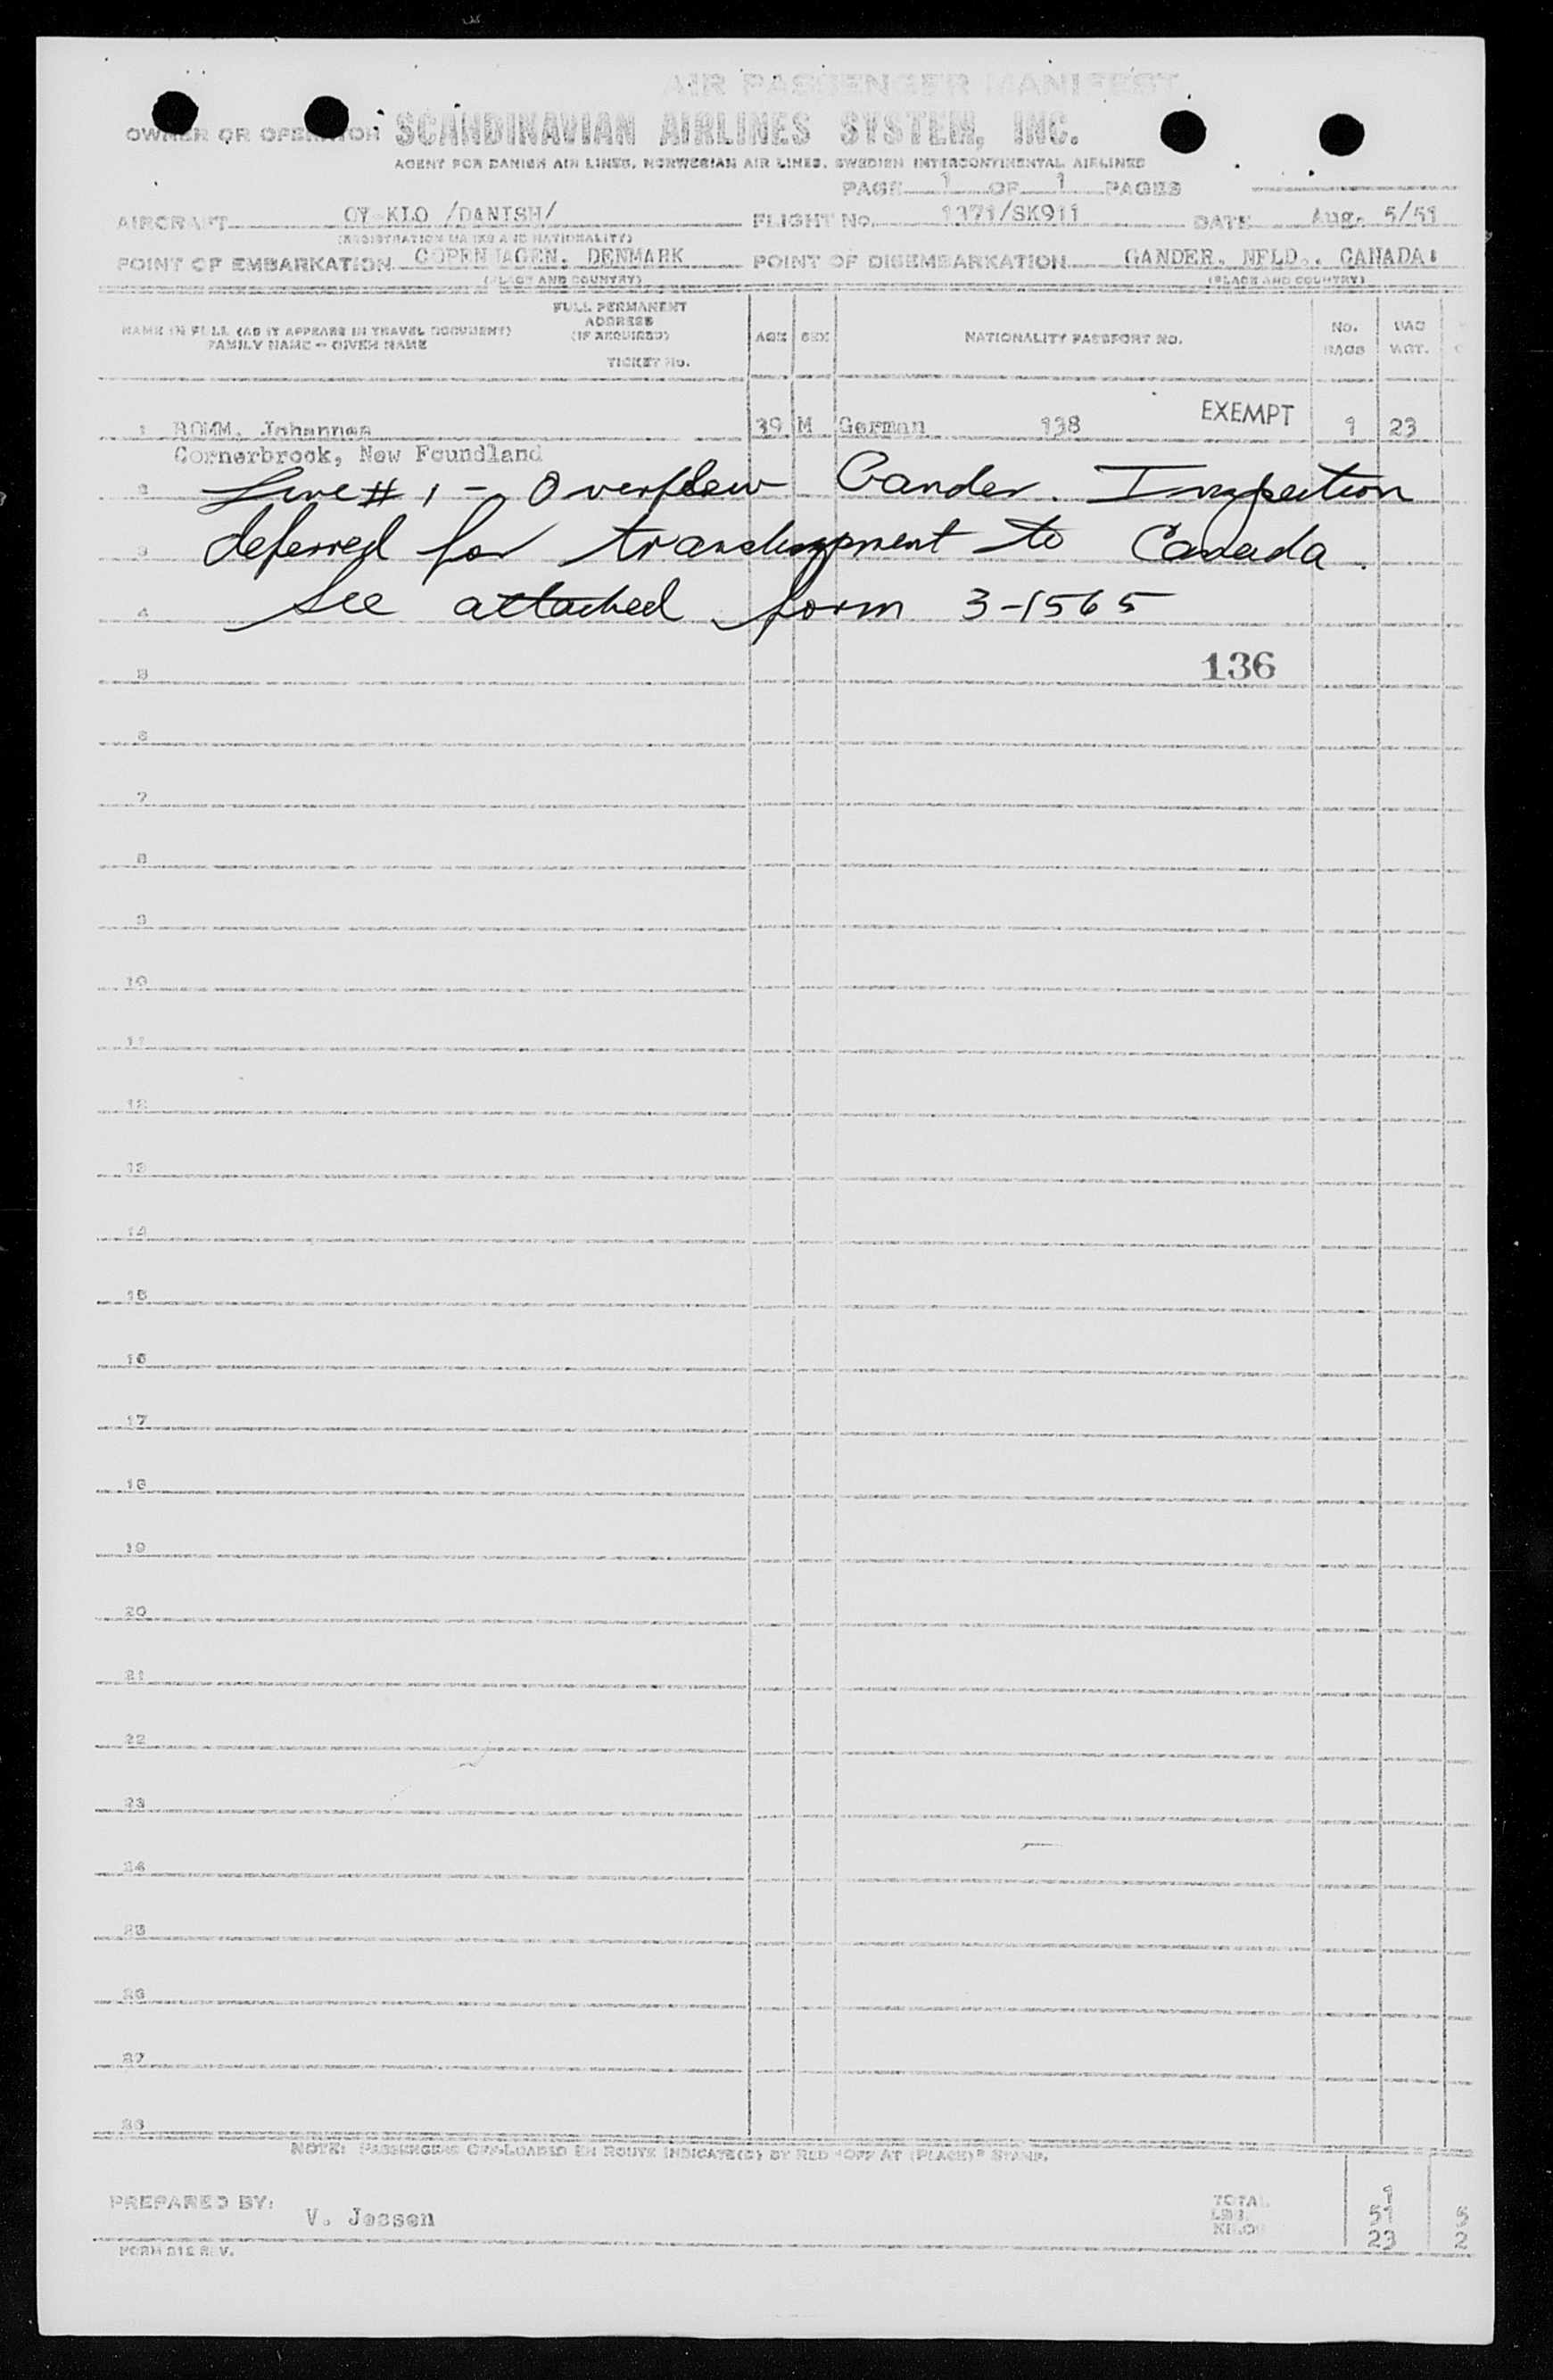 AIR PASSENGER MANIFEST
OWNER OR OPERATOR SCANDINAVIAN AIRLINES SYSTEM, INC.
AGENT FOR DANISH AIR LINES, NORWEGIAN AIR LINES, SWEDISH INTERCONTINENTAL AIRLINES
PAGE 1 OF 1 PAGES
AIRCRAFT OY-KLO /DANISH/ FLIGHT No. 1371/SK911 DATE Aug. 5/51
(REGISTRATION MARKS AND NATIONALITY)
POINT OF EMBARKATION COPENHAGEN, DENMARK POINT OF DISEMBARKATION GANDER, NFLD., CANADA
(PLACE AND COUNTRY) (PLACE AND COUNTRY)
NAME IN FULL (AS IT APPEARS IN TRAVEL DOCUMENT)
FAMILY NAME - GIVEN NAME
FULL PERMANENT
ADDRESS
(IF REQUIRED)
TICKET No.
AGE SEX NATIONALITY PASSPORT NO. No. BAGS BAG WGT.
1 ROMM, Johannes 39 M German 138 EXEMPT 1 23
Cornerbrook, New Foundland
2 Line # 1 - Overflew Gander. Inspection
3 deferred for transhipment to Canada.
4 See attached form 3-1565
5 136
6
7
8
9
10
11
12
13
14
15
16
17
18
19
20
21
22
23
24
25
26
27
28
NOTE: PASSENGERS OFF-LOADED EN ROUTE INDICATE(D) BY RED "OFF AT (PLACE)" STAMP.
PREPARED BY: V. Jessen
TOTAL 1
LBS. 51 5
KILOS 23 2
FORM 212 REV.